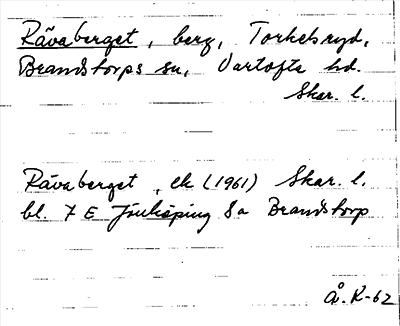 Rävaberget, berg, Torkelsryd,
Brandstorps sn, Vartofta hd.
Skar. l.
Rävaberget, ek (1961) Skar. l.
bl. 7 E Jönköping 8a Brandstorp
Å. K-62